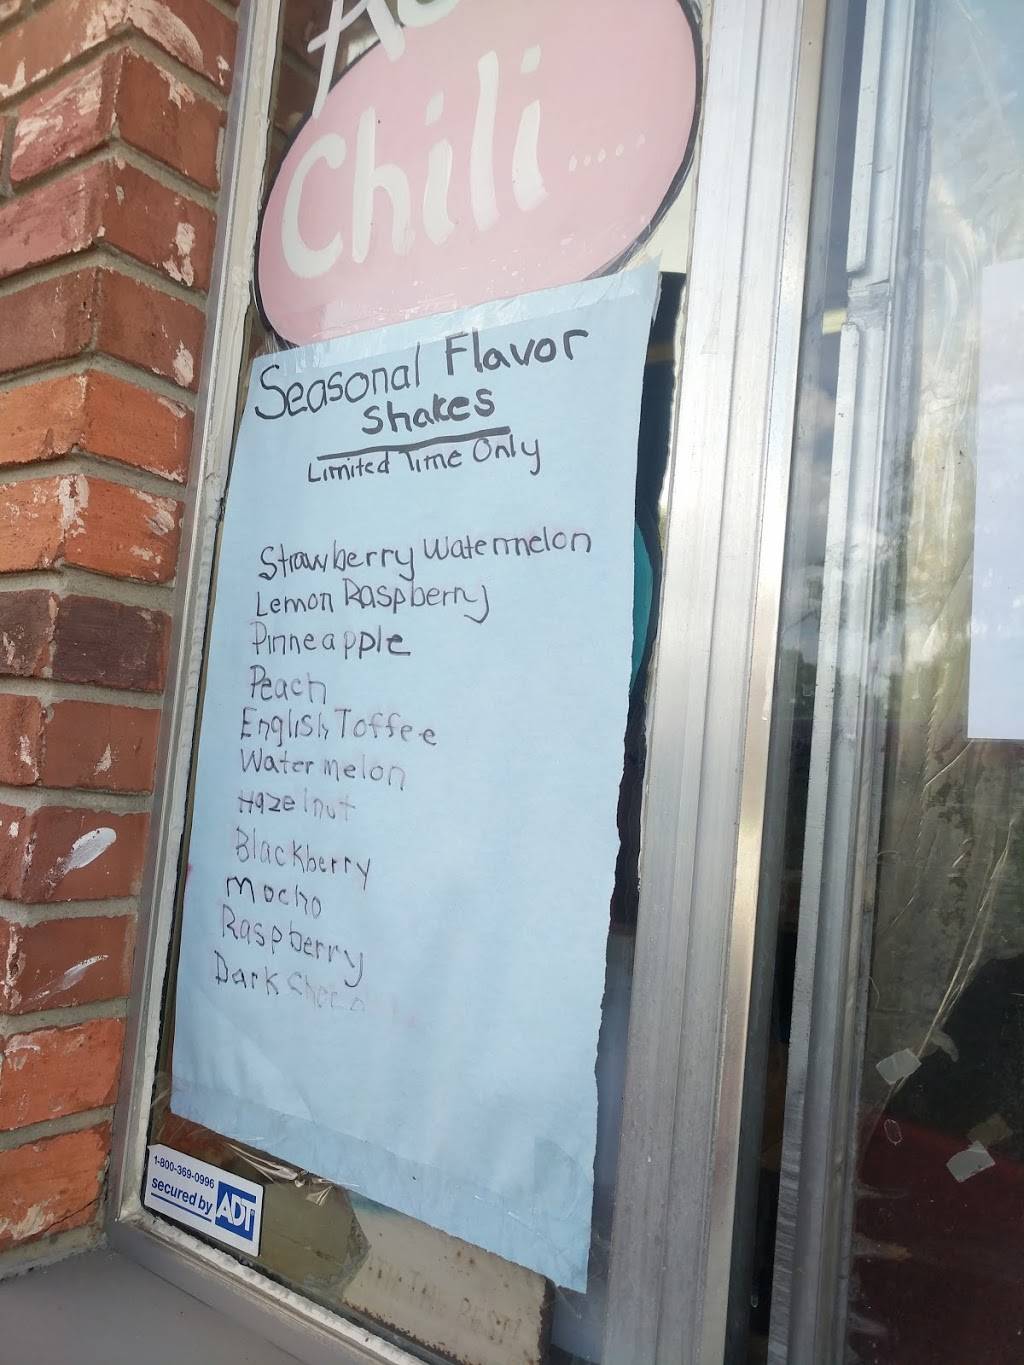 Chili.....
Seasonal Flavor
Shakes
Limited Time Only
Strawberry Watermelon
Lemon Raspberry
Pinneapple
Peach
English Toffee
Watermelon
Hazelnut
Blackberry
Mocho
Raspberry
Dark Choco
1-800-369-0996
secured by ADT